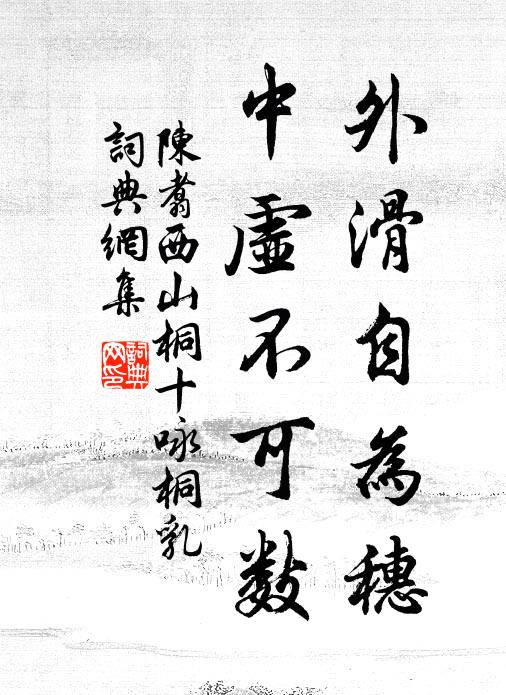 外滑自為穗
中虛不可數
陳翥西山桐十咏桐乳
詞典網集
詞典網印